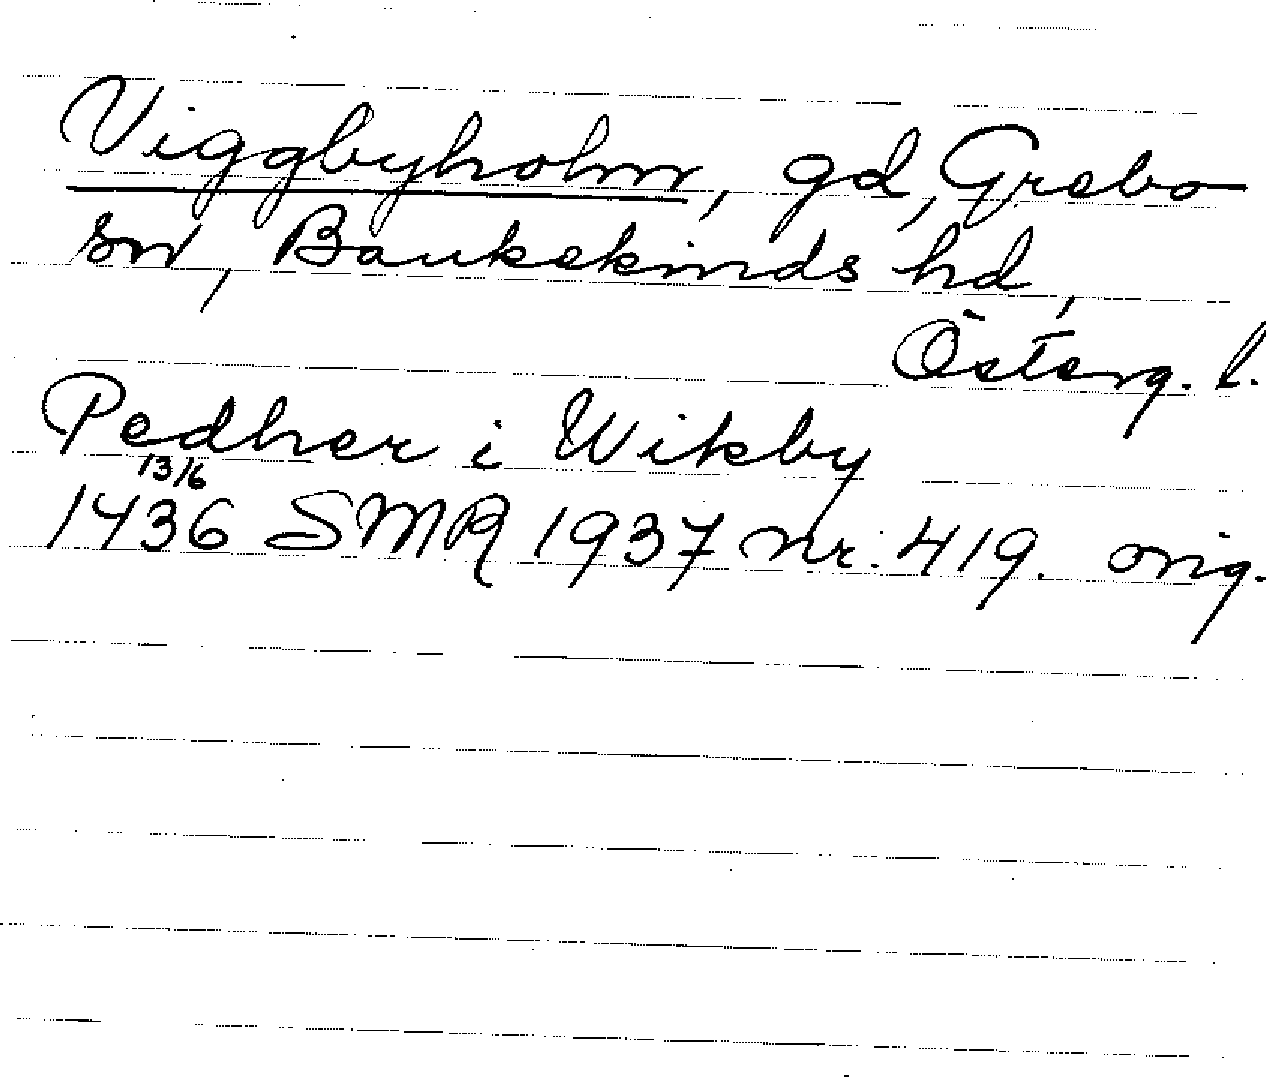 Viggbyholm, gd, Grebo
sn, Bankekinds hd,
Österg. l.
Pedher i Wikby
13/6
1436 SMR 1937 nr. 419. orig.